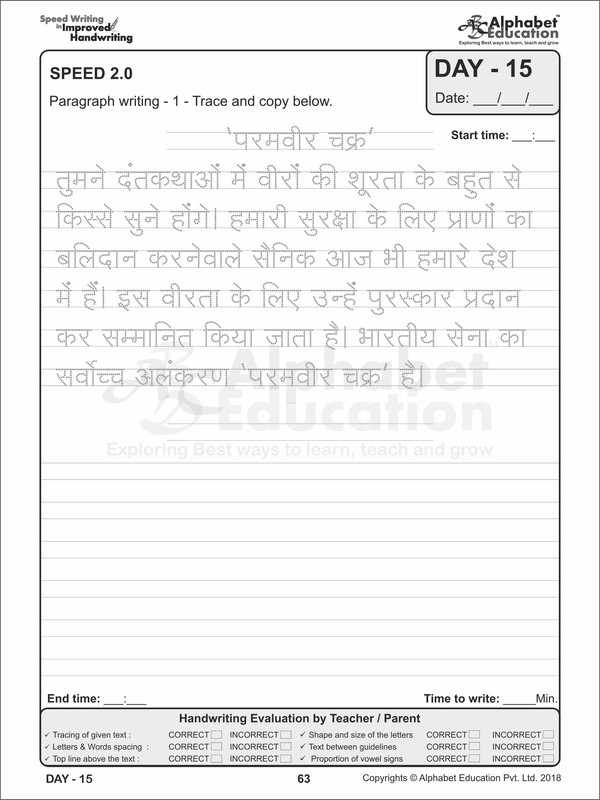 Speed Writing
in Improved
Handwriting
ABC Alphabet™
Education
Exploring Best ways to learn, teach and grow
SPEED 2.0
DAY - 15
Date: ___/___/___
Paragraph writing - 1 - Trace and copy below.
Start time: ___:___
'परमवीर चक्र'
तुमने दंतकथाओं में वीरों की शूरता के बहुत से
किस्से सुने होंगे। हमारी सुरक्षा के लिए प्राणों का
बलिदान करनेवाले सैनिक आज भी हमारे देश
में हैं। इस वीरता के लिए उन्हें पुरस्कार प्रदान
कर सम्मानित किया जाता है। भारतीय सेना का
सर्वोच्च अलंकरण 'परमवीर चक्र' है।
ABC Alphabet™
Education
Exploring Best ways to learn, teach and grow
End time: ___:___
Time to write: _____Min.
Handwriting Evaluation by Teacher / Parent
✓ Tracing of given text : CORRECT INCORRECT ✓ Shape and size of the letters CORRECT INCORRECT
✓ Letters & Words spacing : CORRECT INCORRECT ✓ Text between guidelines CORRECT INCORRECT
✓ Top line above the text : CORRECT INCORRECT ✓ Proportion of vowel signs CORRECT INCORRECT
DAY - 15
63
Copyrights © Alphabet Education Pvt. Ltd. 2018